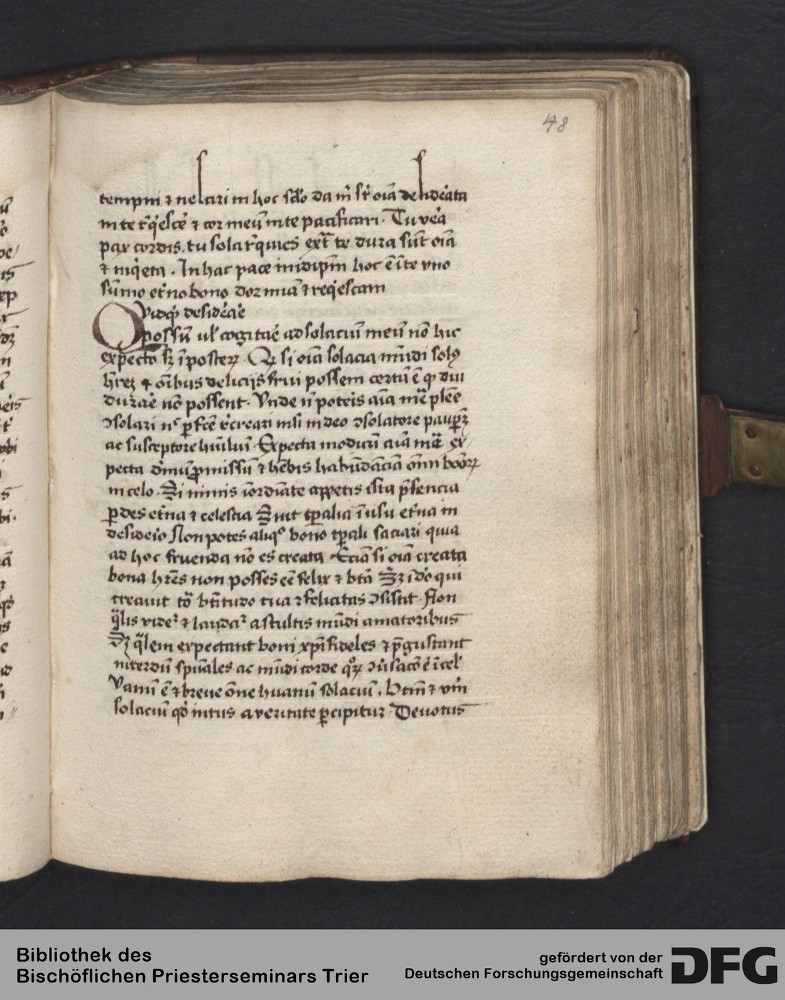 48
tempni ⁊ nesciri in hoc sclo da m̄ sr̄ oīa desideᷓata
in te r̄q̇escē ⁊ cor meū in te pacificari · Tu veᷓa
pax cordis, tu sola r̄quies ext̄ te dura sūt oīa
⁊ inq̇eta . In hac pace in idip̄m hoc ē ī te vno
sūmo et̄no bono dormiā ⁊ reqescam
Quidq̄ desideᷓaē
possū ul̄ cogitaē ad solaciū meū nō hic
expecto sꝫ ī posterꝝ · Qꝛ si oīa solacia mūdi solꝰ
hr̄eꝫ ⁊ oībus delicijs frui possem certū ē ꝙ diu
duraᷓe nō possent · Vnde n̄ poteis aīa mē plēe
ꝯsolari nᶜ ꝑfcē rͨreari nisi in deo ꝯsolatore paupꝝ
ac susceptore humiliū · Expecta modicū aīa mē ex
pecta diuinū ꝓmissū ⁊ hēbis habūdāciā oīm boōꝝ
in celo · Si nimis īordīate appetis ista p̄sencia
ꝑdes et̄na ⁊ celestia Sint tꝑalia ī usu et̄na in
desideīo Non potes aliqᵒ bono tꝑali saciari quia
ad hoc fruenda nō es creata Eciā si oīa creata
bona hr̄es non posses eē felix ⁊ bt̄a Sꝫ ī dō qui
creauit tō b̄titudo tua ⁊ felicitas ꝯsistit · Non
q̄lis videᷣ ⁊ laudaᷣ a stultis mūdi amatoribus
sꝫ q̄lem expectant boni xp̄i fideles ⁊ p̄gustant
interdū spūales ac mūdi corde qꝝ ꝯūsacō ē ī cel̄
Vanū ē ⁊ breue ōne huānū solaciū · Btm̄ ⁊ vm̄
solaciū qd̄ intus a veritate ꝑcipitur Deuotus
Bibliothek des
Bischöflichen Priesterseminars Trier
gefördert von der
Deutschen Forschungsgemeinschaft
DFG